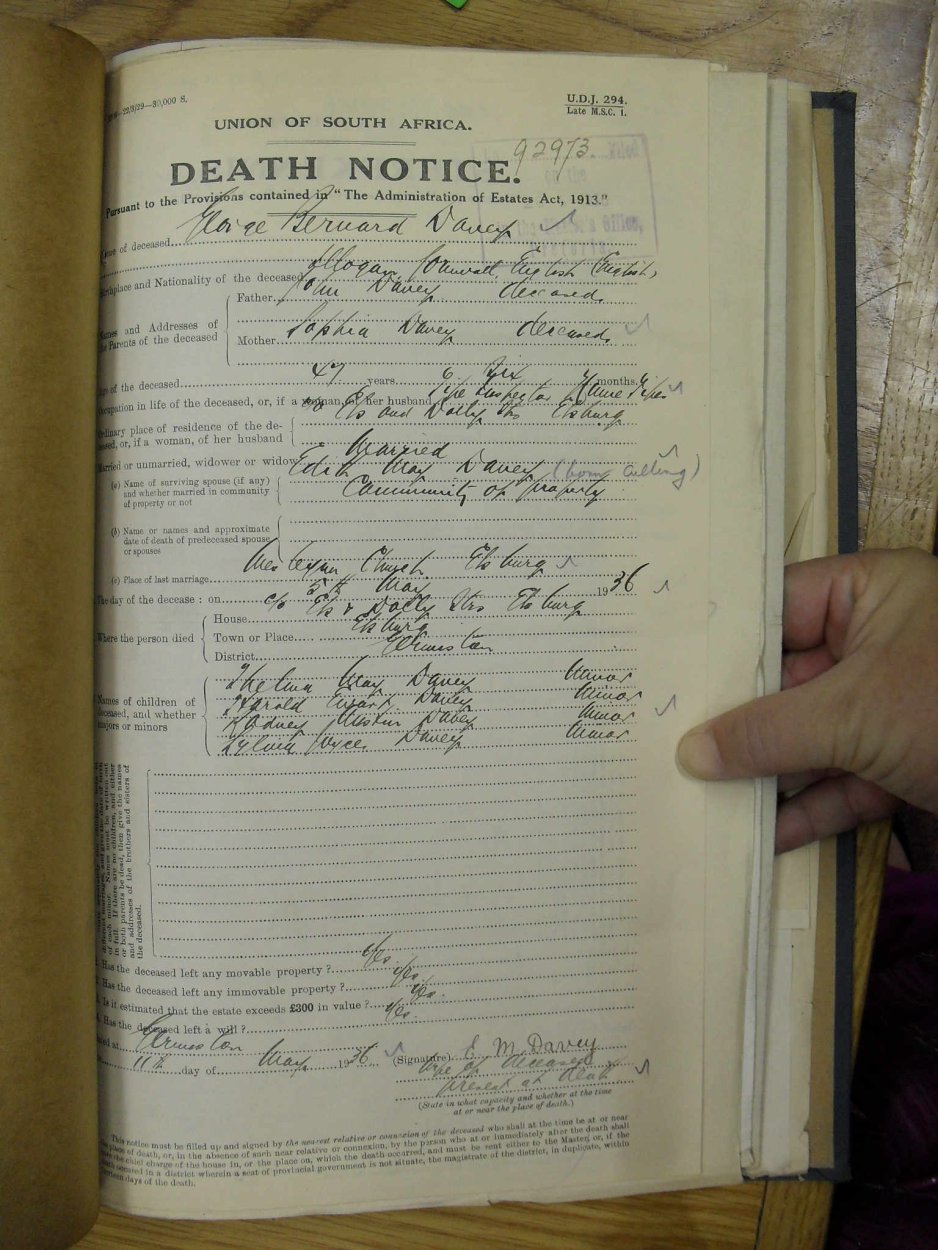 22/8/29—30,000 S.
U.D.J. 294.
Late M.S.C. 1.
UNION OF SOUTH AFRICA.
92973
DEATH NOTICE.
Pursuant to the Provisions contained in "The Administration of Estates Act, 1913."
Name of deceased George Bernard Davey
Birthplace and Nationality of the deceased Illogan, Cornwall, English (English)
Names and Addresses of the Parents of the deceased
Father John Davey deceased
Mother Sophia Davey deceased
Age of the deceased 47 years 6 Six months.
Occupation in life of the deceased, or, if a woman, of her husband Pipe Inspector
Ordinary place of residence of the deceased, or, if a woman, of her husband
c/o Els and Dolly Strs Elsburg
Married or unmarried, widower or widow Married
(a) Name of surviving spouse (if any) and whether married in community of property or not
Edith May Davey (born
Community of property
(b) Name or names and approximate date of death of predeceased spouse or spouses
(c) Place of last marriage Wesleyan Church Elsburg
The day of the decease: on 5th May 1936
Where the person died
House c/o Els & Dolly Strs Elsburg
Town or Place Elsburg
District Germiston
Names of children of deceased, and whether majors or minors
Thelma May Davey Minor
Harold Ewart Davey Minor
Rodney Davey Minor
Sylvia Joyce Davey Minor
of each minor. Names must be written out
in full. If there are no children, and either
or both parents be dead, then give the names
and addresses of the brothers and sisters of
the deceased.
Has the deceased left any movable property? Yes
Has the deceased left any immovable property? Yes.
Is it estimated that the estate exceeds £300 in value? Yes.
Has the deceased left a will? Yes.
Dated at Germiston
11th day of May 1936
(Signature) E M Davey
wife of deceased
present at death
(State in what capacity and whether at the time
at or near the place of death.)
This notice must be filled up and signed by the nearest relative or connexion of the deceased who shall at the time be at or near
the place of death, or, in the absence of such near relative or connexion, by the person who at or immediately after the death shall
have the chief charge of the house in, or the place on, which the death occurred, and must be sent either to the Master, or, if the
death occurred in a district wherein a seat of provincial government is not situate, the magistrate of the district, in duplicate, within
fourteen days of the death.